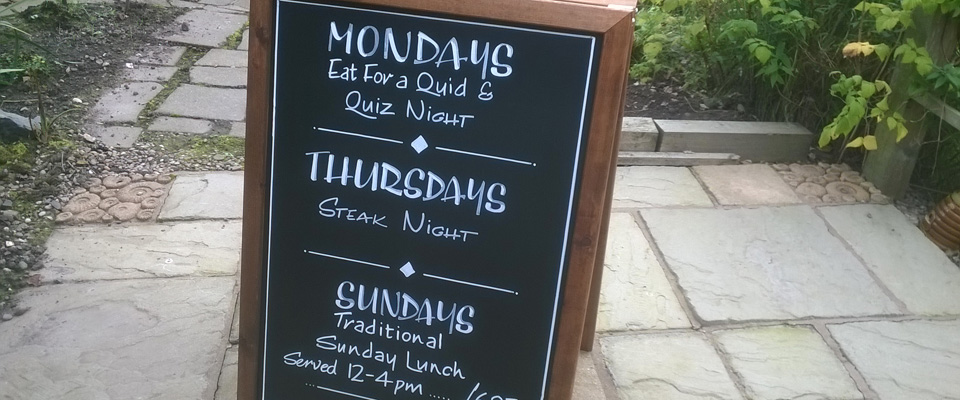 MONDAYS
Eat For a Quid &
Quiz Night
THURSDAYS
STEAK NIGHT
SUNDAYS
Traditional
Sunday Lunch
Served 12-4pm